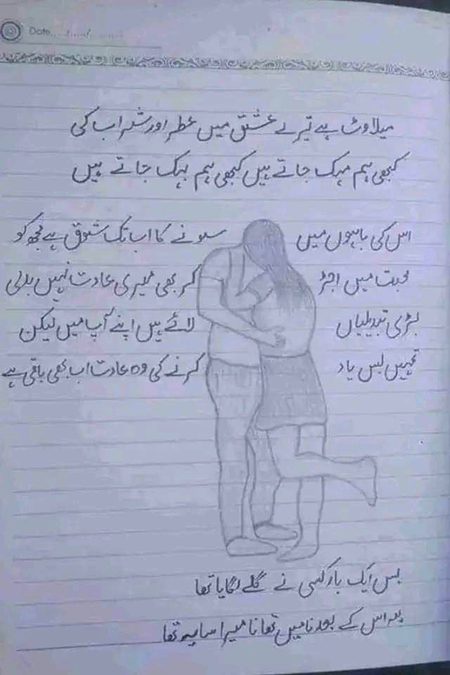 Date
ملاوٹ ہے تیرے عشق میں عطر اور شراب کی
کبھی ہم مہک جاتے ہیں کبھی ہم بہک جاتے ہیں
اس کی باہوں میں سونے کا اب تک شوق ہے مجھ کو
محبت میں اجڑ کر بھی میری عادت نہیں بدلی
بڑی تبدیلیاں لائے ہیں اپنے آپ میں لیکن
تمہیں بس یاد کرنے کی وہ عادت اب بھی باقی ہے
بس ایک بار کسی نے گلے لگایا تھا
پھر اس کے بعد نا میں تھا نا میرا سایہ تھا